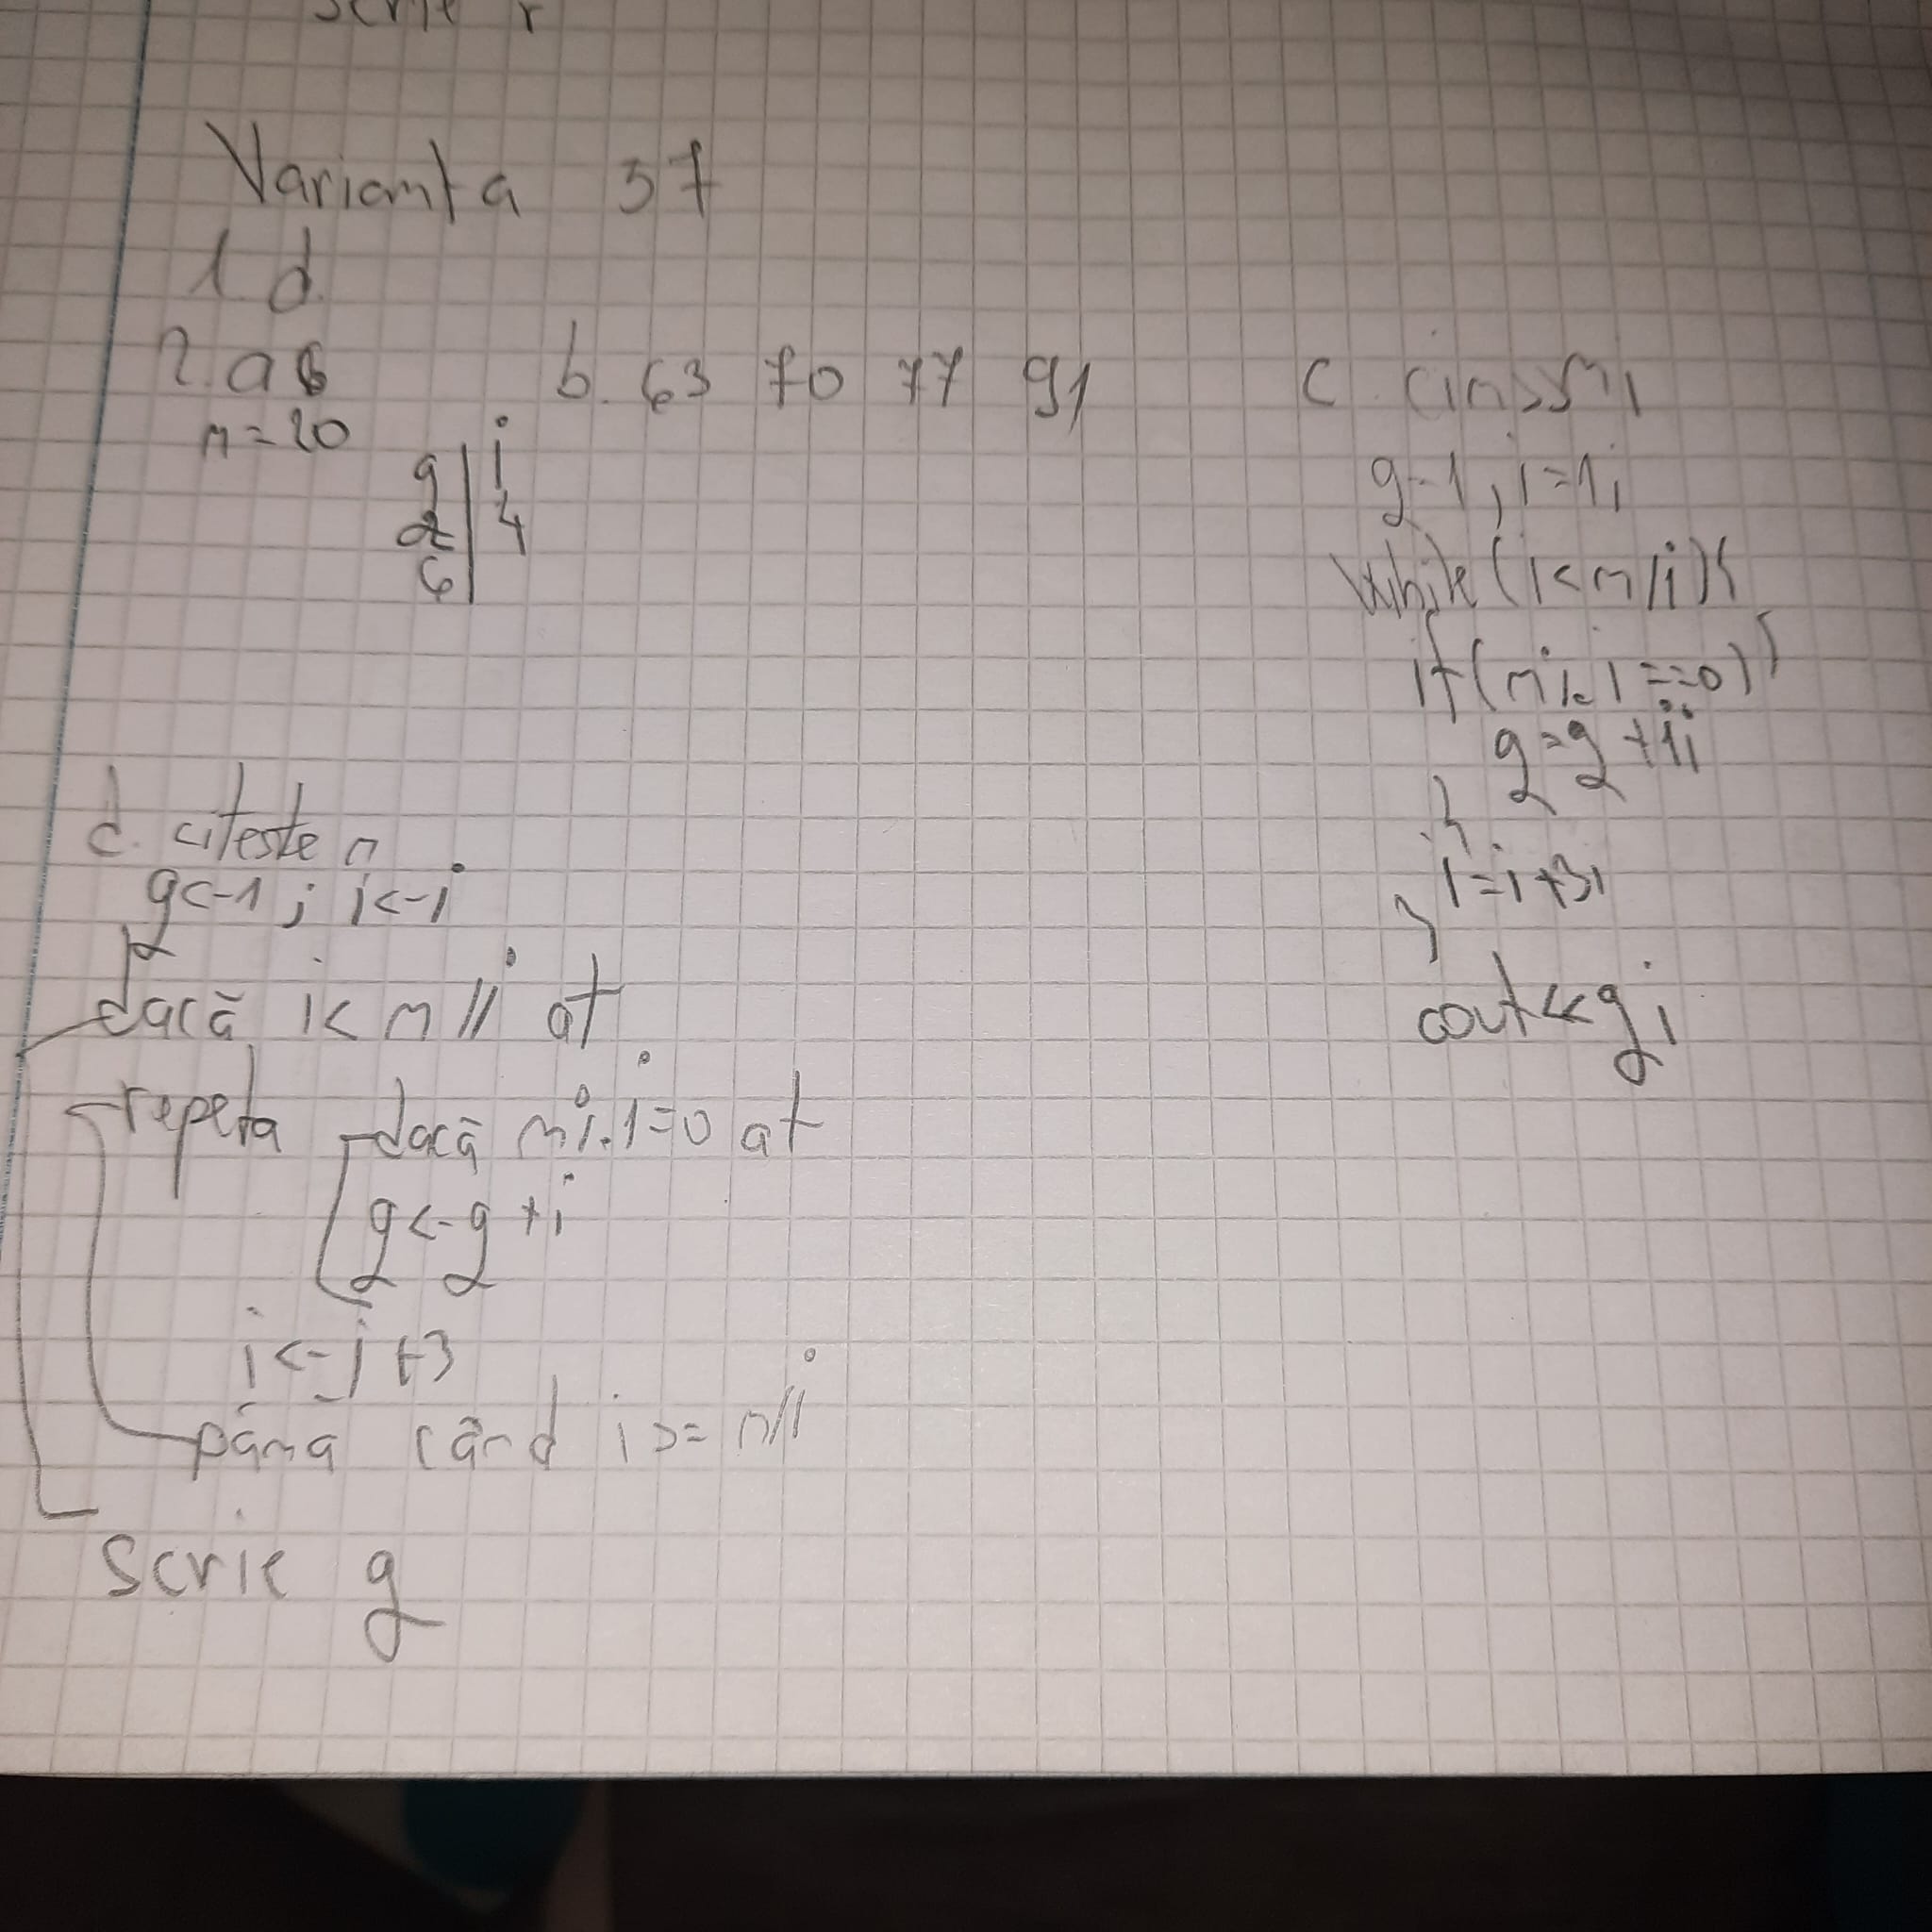 scrie r
Varianta 37
1. d.
2. a 6
n=20
g | i
2 | 4
6
b. 63 70 77 91
c. cin>>n;
g=1; i=1;
while(i<n/i){
if(n%i==0){
g=g+i;
}
i=i+3;
}
cout<<g;
d. citeste n
g<-1; i<-i
dacă i< n/i at
repeta dacă n%i=0 at
g<-g+i
i<-i+3
pâna când i>= n/i
scrie g